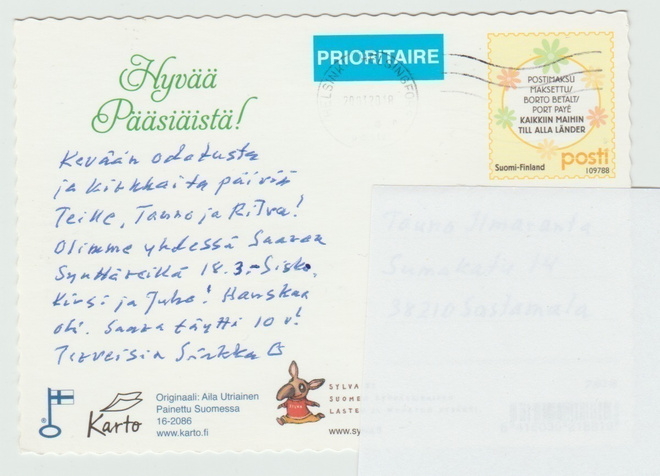 Hyvää
Pääsiäistä!
PRIORITAIRE
POSTIMAKSU
MAKSETTU/
PORTO BETALT/
PORT PAYÉ
KAIKKIIN MAIHIN
TILL ALLA LÄNDER
Suomi-Finland
posti
109788
Kevään odotusta
ja kirkkaita päiviä
Teille, Tauno ja Ritva!
Olimme yhdessä Saaran
Synttäreillä 18.3. Sisko,
Kirsi ja Juha! Hauskaa
oli. Saara täytti 10 v!
Terveisin Sirkka
Karto
Originaali: Aila Utriainen
Painettu Suomessa
16-2086
www.karto.fi
SYLVA
SUOME
LASTE
www.sy